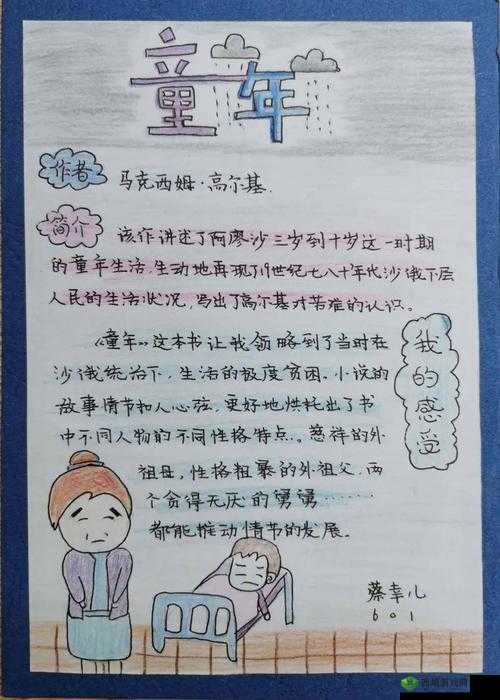 童年
作者
马克西姆·高尔基.
简介
该作讲述了阿廖沙三岁到十岁这一时期
的童年生活.生动地再现了19世纪七八十年代沙俄下层
人民的生活状况,写出了高尔基对苦难的认识。
《童年》这本书让我领略到了当时在
沙俄统治下,生活的极度贫困。小说的
故事情节扣人心弦,更好地烘托出了书
中不同人物的不同性格特点。慈祥的外
祖母,性格粗暴的外祖父,两
个贪得无厌的舅舅………
都能推动情节的发展。
我的感受
蔡幸儿
601